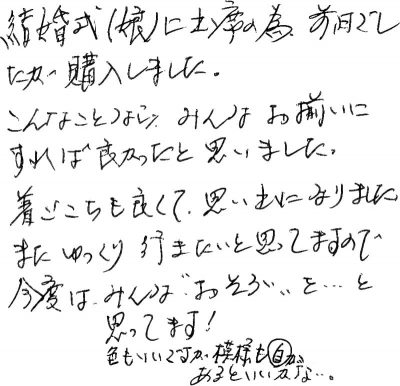 結婚式(娘)に出席の為 前日でし
たが購入しました。
こんなことなら、みんなお揃いに
すれば良かったと思いました。
着ごこちも良くて、思い出になりました
また ゆっくり 行きたいと思ってますので
今度は、みんな"おそろ"を…と
思ってます!
色もいいですが、模様も白が
あるといいかな…。